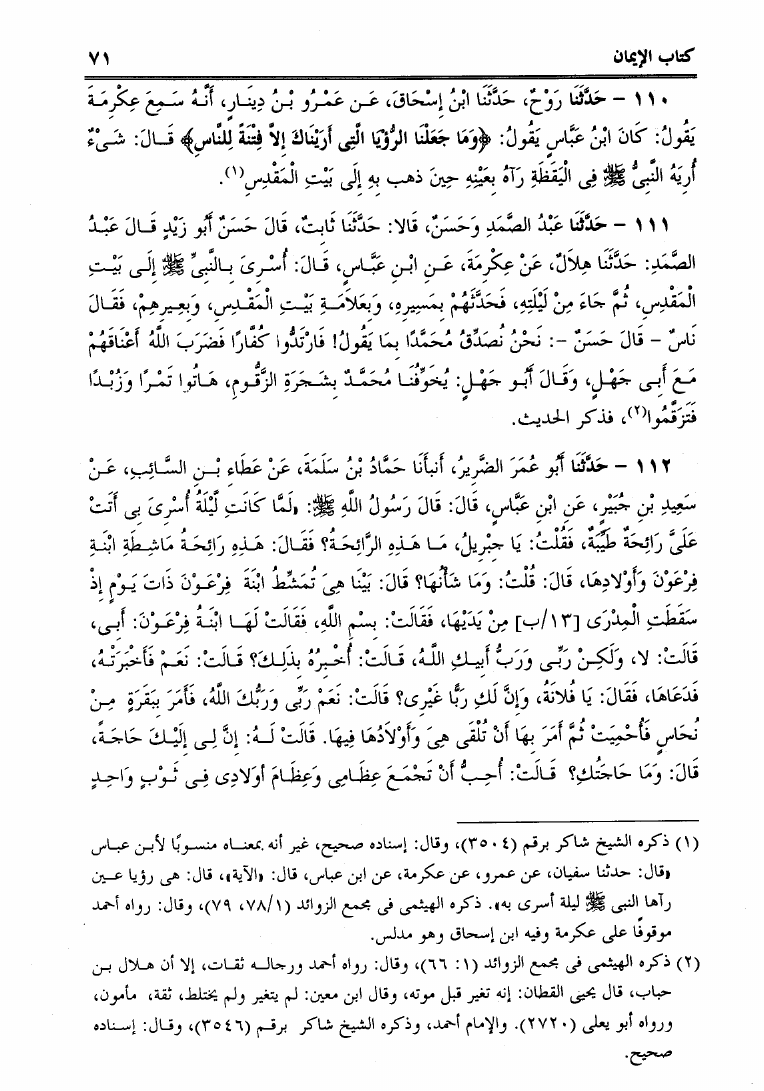 كتاب الإيمان ٧١
١١٠ - حَدَّثَنَا رَوْحٌ، حَدَّثَنَا ابْنُ إِسْحَاقَ، عَـن عَمْـرُو بْـنُ دِينَـارٍ، أَنَّـهُ سَـمِعَ عِكْرِمَـةَ
يَقُولُ: كَانَ ابْنُ عَبَّاسٍ يَقُولُ: ﴿وَمَا جَعَلْنَا الرُّؤْيَا الَّتِى أَرَيْنَاكَ إِلاَّ فِتْنَةً لِلنَّاسِ﴾ قَـالَ: شَـىْءٌ
أُرِيَهُ النَّبِىُّ ﷺ فِى الْيَقَظَةِ رَآهُ بِعَيْنِهِ حِينَ ذهب بِهِ إِلَى بَيْتِ الْمَقْدِسِ(١).
١١١ - حَدَّثَنَا عَبْدُ الصَّمَدِ وَحَسَنٌ، قَالا: حَدَّثَنَا ثَابِتٌ، قَالَ حَسَنٌ أَبُو زَيْدٍ قَـالَ عَبْـدُ
الصَّمَدِ: حَدَّثَنَا هِلاَلٌ، عَنْ عِكْرِمَةَ، عَـنِ ابْـنِ عَبَّـاسٍ، قَـالَ: أُسْـرِىَ بِـالنَّبِىِّ ﷺ إِلَـى بَيْـتِ
الْمَقْدِسِ، ثُمَّ جَاءَ مِنْ لَيْلَتِهِ، فَحَدَّثَهُمْ بِمَسِيرِهِ، وَبِعَلاَمَـةِ بَيْـتِ الْمَقْـدِسِ، وَبِعِـيرِهِمْ، فَقَـالَ
نَاسٌ - قَالَ حَسَنٌ -: نَحْنُ نُصَدِّقُ مُحَمَّدًا بِمَا يَقُولُ! فَارْتَدُّوا كُفَّارًا فَضَرَبَ اللَّهُ أَعْنَاقَهُمْ
مَعَ أَبِى جَهْـلٍ، وَقَـالَ أَبُـو جَهْـلٍ: يُخَوِّفُنَـا مُحَمَّـدٌ بِشَـجَرَةِ الزَّقُّـومِ، هَـاتُوا تَمْـرًا وَزُبْـدًا
فَتَزَقَّمُوا(٢)، فذكر الحديث.
١١٢ - حَدَّثَنَا أَبُو عُمَرَ الضَّرِيرُ، أَنبأَنَا حَمَّادُ بْنُ سَلَمَةَ، عَنْ عَطَاءِ بْـنِ السَّـائِبِ، عَـنْ
سَعِيدِ بْنِ جُبَيْرٍ، عَنِ ابْنِ عَبَّاسٍ، قَالَ: قَالَ رَسُولُ اللَّهِ ﷺ: «لَمَّا كَانَتِ لَّيْلَةُ أُسْرِىَ بِى أَتَتْ
عَلَىَّ رَائِحَةٌ طَيِّبَةٌ، فَقُلْتُ: يَا جِبْرِيلُ، مَـا هَـذِهِ الرَّائِحَـةُ؟ فَقَـالَ: هَـذِهِ رَائِحَـةُ مَاشِـطَةِ ابْنَـةِ
فِرْعَوْنَ وَأَوْلادِهَا، قَالَ: قُلْتُ: وَمَا شَأْنُهَا؟ قَالَ: بَيْنَا هِىَ تُمَشِّطُ ابْنَةَ فِرْعَـوْنَ ذَاتَ يَـوْمٍ إِذْ
سَقَطَتِ الْمِدْرَى [١٣/ب] مِنْ يَدَيْهَا، فَقَالَتْ: بِسْمِ اللَّهِ، فَقَالَتْ لَهَـا ابْنَـةُ فِرْعَـوْنَ: أَبِى،
قَالَتْ: لا، وَلَكِـنْ رَبِّـى وَرَبُّ أَبِيـكِ اللَّـهُ، قَـالَتْ: أُخْـبِرُهُ بِذَلِـكَ؟ قَـالَتْ: نَعَـمْ فَأَخْبَرَتْـهُ،
فَدَعَاهَا، فَقَالَ: يَا فُلاَنَةُ، وَإِنَّ لَكِ رَبًّا غَيْرِى؟ قَالَتْ: نَعَمْ رَبِّى وَرَبُّكَ اللَّهُ، فَأَمَرَ بِبَقَرَةٍ مِـنْ
نُحَاسٍ فَأُحْمِيَتْ ثُمَّ أَمَرَ بِهَا أَنْ تُلْقَى هِىَ وَأَوْلَادُهَا فِيهَا. قَالَتْ لَـهُ: إِنَّ لِـى إِلَيْـكَ حَاجَـةً،
قَالَ: وَمَا حَاجَتُكِ؟ قَـالَتْ: أُحِـبُّ أَنْ تَجْمَـعَ عِظَـامِى وَعِظَـامَ أوْلاَدِى فِـى ثَـوْبٍ وَاحِـدٍ
(١) ذكره الشيخ شاكر برقم (٣٥٠٤)، وقال: إسناده صحيح، غير أنه بمعنـاه منسـوبًا لأبـن عبـاس
«قال: حدثنا سفيان، عن عمرو، عن عكرمة، عن ابن عباس، قال: «الآية»، قال: هى رؤيا عـين
رآها النبى ﷺ ليلة أسرى به». ذكره الهيثمى فى مجمع الزوائد (٧٨/١، ٧٩)، وقال: رواه أحمد
موقوفًا على عكرمة وفيه ابن إسحاق وهو مدلس.
(٢) ذكره الهيثمى فى مجمع الزوائد (١: ٦٦)، وقال: رواه أحمد ورجالـه ثقـات، إلا أن هـلال بـن
حباب، قال يحيى القطان: إنه تغير قبل موته، وقال ابن معين: لم يتغير ولم يختلط، ثقة، مأمون،
ورواه أبو يعلى (٢٧٢٠). والإمام أحمد، وذكره الشيخ شاكر برقـم (٣٥٤٦)، وقـال: إسـناده
صحيح.